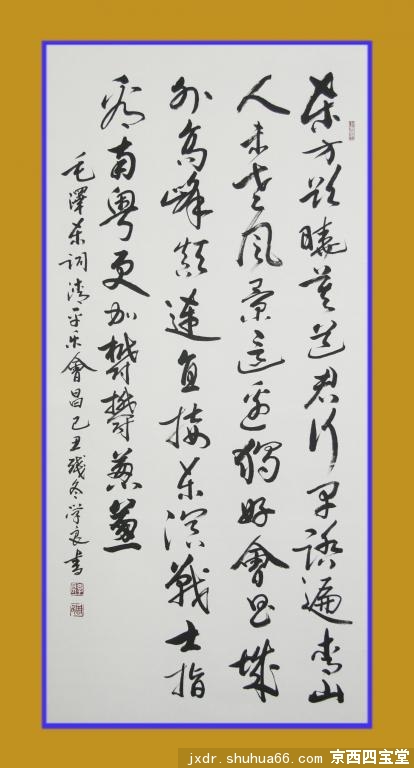 东方欲曉莫道君行早踏遍青山
人未老风景這边獨好會昌城
外高峰颠連直接东溟戰士指
看南粤更加鬱鬱葱葱
毛澤东詞清平乐會昌己丑残冬学良書
jxdr.shuhua66.com 京西四宝堂